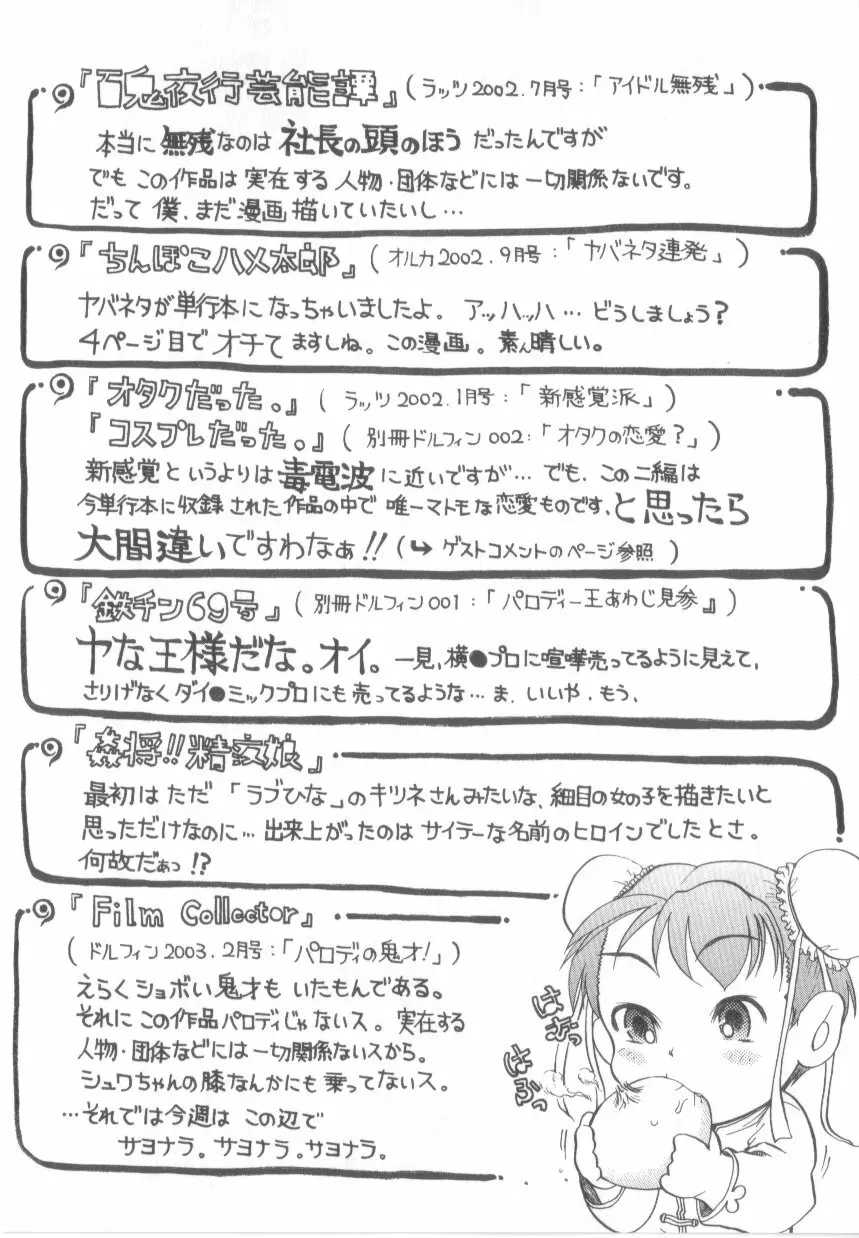 『百鬼夜行芸能譚』(ラッツ2002.7月号:「アイドル無残」)
本当に無残なのは社長の頭のほうだったんですが
でもこの作品は実在する人物・団体などには一切関係ないです。
だって僕、まだ漫画描いていたいし…
『ちんぽこハメ太郎』(オルカ2002.9月号:「ヤバネタ連発」)
ヤバネタが単行本になっちゃいましたよ。アッハッハ…どうしましょう?
4ページ目でオチてますしね。この漫画。素ん晴しい。
『オタクだった。』(ラッツ2002.1月号:「新感覚派」)
『コスプレだった。』(別冊ドルフィン002:「オタクの恋愛?」)
新感覚というよりは毒電波に近いですが…でも、この二編は
今単行本に収録された作品の中で唯一マトモな恋愛ものです、と思ったら
大間違いですわなぁ!!(↪ゲストコメントのページ参照)
『鉄チン69号』(別冊ドルフィン001:「パロディー王あわじ見参』)
ヤな王様だな。オイ。一見、横●プロに喧嘩売ってるように見えて、
さりげなくダイ●ミックプロにも売ってるような…ま、いいや、もう、
『姦将!!精攻娘』
最初はただ「ラブひな」のキツネさんみたいな、細目の女の子を描きたいと
思っただけなのに…出来上がったのはサイテーな名前のヒロインでしたとさ。
何故だぁっ!?
『Film Collector』
(ドルフィン2003.2月号:「パロディの鬼才!」)
えらくショボい鬼才もいたもんである。
それにこの作品パロディじゃないス。実在する
人物・団体などには一切関係ないスから。
シュワちゃんの膝なんかにも乗ってないス。
…それでは今週はこの辺で
サヨナラ。サヨナラ。サヨナラ。
はふっ
はふっ